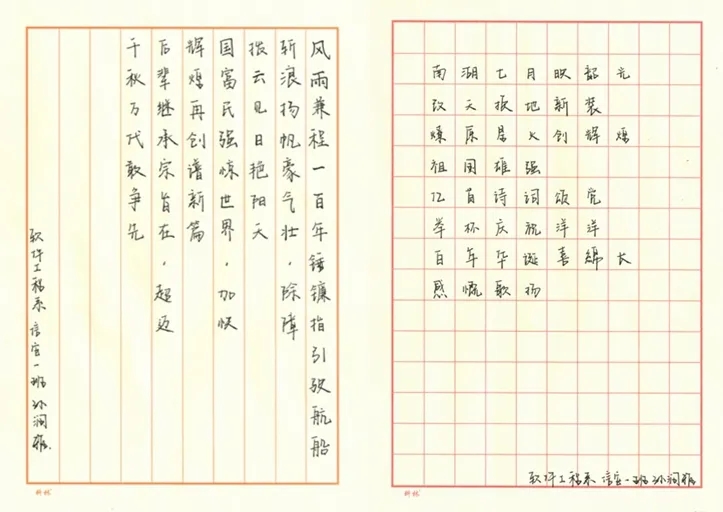 风雨兼程一百年锤镰指引驶航船
斩浪扬帆豪气壮，除障
拨云见日艳阳天
国富民强惊世界，加快
辉煌再创谱新篇
后辈继承宗旨在，超迈
千秋万代敢争先
软件工程系 信安一班 孙润雅
科林
南湖七月映韶光
改天换地新装
燎原星火创辉煌
祖国雄强
亿首诗词颂党
举杯庆祝洋洋
百年华诞喜绵长
感慨歌扬
软件工程系 信安一班 孙润雅
科林